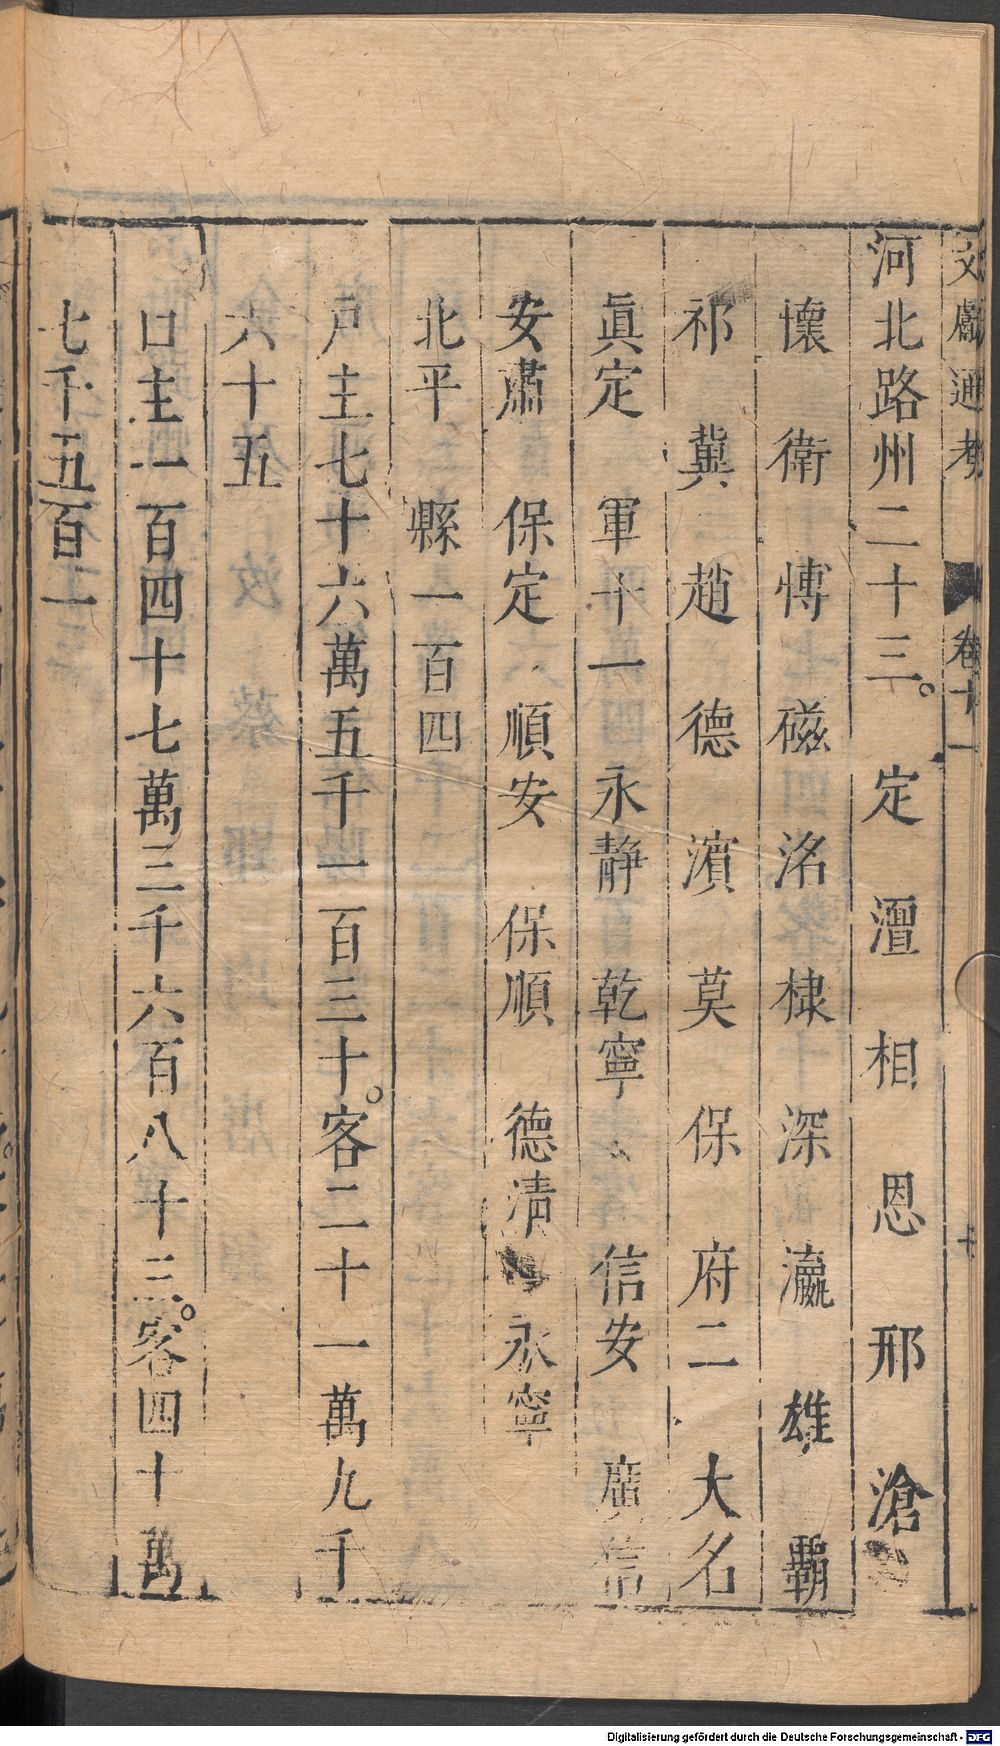 文獻通考 卷十一
河北路州二十三。定 澶 相 恩 邢 滄
懷 衛 愽 磁 洺 棣 深 瀛 雄 霸
祁 冀 趙 德 濱 莫 保 府二 大名
眞定 軍十一 永靜 乾寧 信安 廣信
安肅 保定 順安 保順 德清 永寧
北平 縣一百四
戸主七十六萬五千一百三十。客二十一萬九千
六十五
口主一百四十七萬三千六百八十三。客四十萬
七千五百一
Digitalisierung gefördert durch die Deutsche Forschungsgemeinschaft - DFG